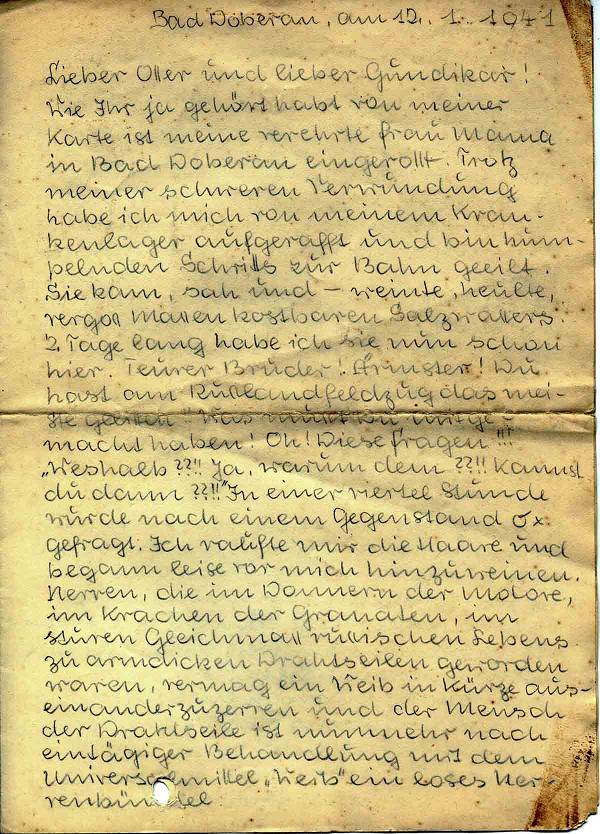 Bad Doberan, am 12. 1. 1941
Lieber Otter und lieber Gundikar!
Wie Ihr ja gehört habt von meiner
Karte ist meine verehrte Frau Mama
in Bad Doberan eingerollt. Trotz
meiner schweren Verwundung
habe ich mich von meinem Kran-
kenlager aufgerafft und bin hum-
pelnden Schritts zur Bahn geeilt.
Sie kam, sah und – weinte, heulte,
vergoß Massen kostbaren Salzwassers.
2 Tage lang habe ich sie nun schon
hier. Teurer Bruder! Ärmster! Du
hast am Rußlandfeldzug das mei-
ste Was mußt Du mitge-
macht haben! Oh! Diese Fragen!!!
„Weshalb??!! Ja, warum denn??!! Kannst
du dann??!!“ In einer viertel Stunde
wurde nach einem Gegenstand 5x
gefragt. Ich raufte mir die Haare und
begann leise vor mich hinzuweinen.
Nerven, die im Donnern der Motore,
im Krachen der Granaten, im
sturen Gleichmaß russischen Lebens
zu armdicken Drahtseilen geworden
waren, vermag ein Weib in Kürze aus-
einanderzuzerren und der Mensch
der Drahtseile ist nunmehr nach
eintägiger Behandlung mit dem
Universalmittel „Weib“ ein loses Ner-
venbündel